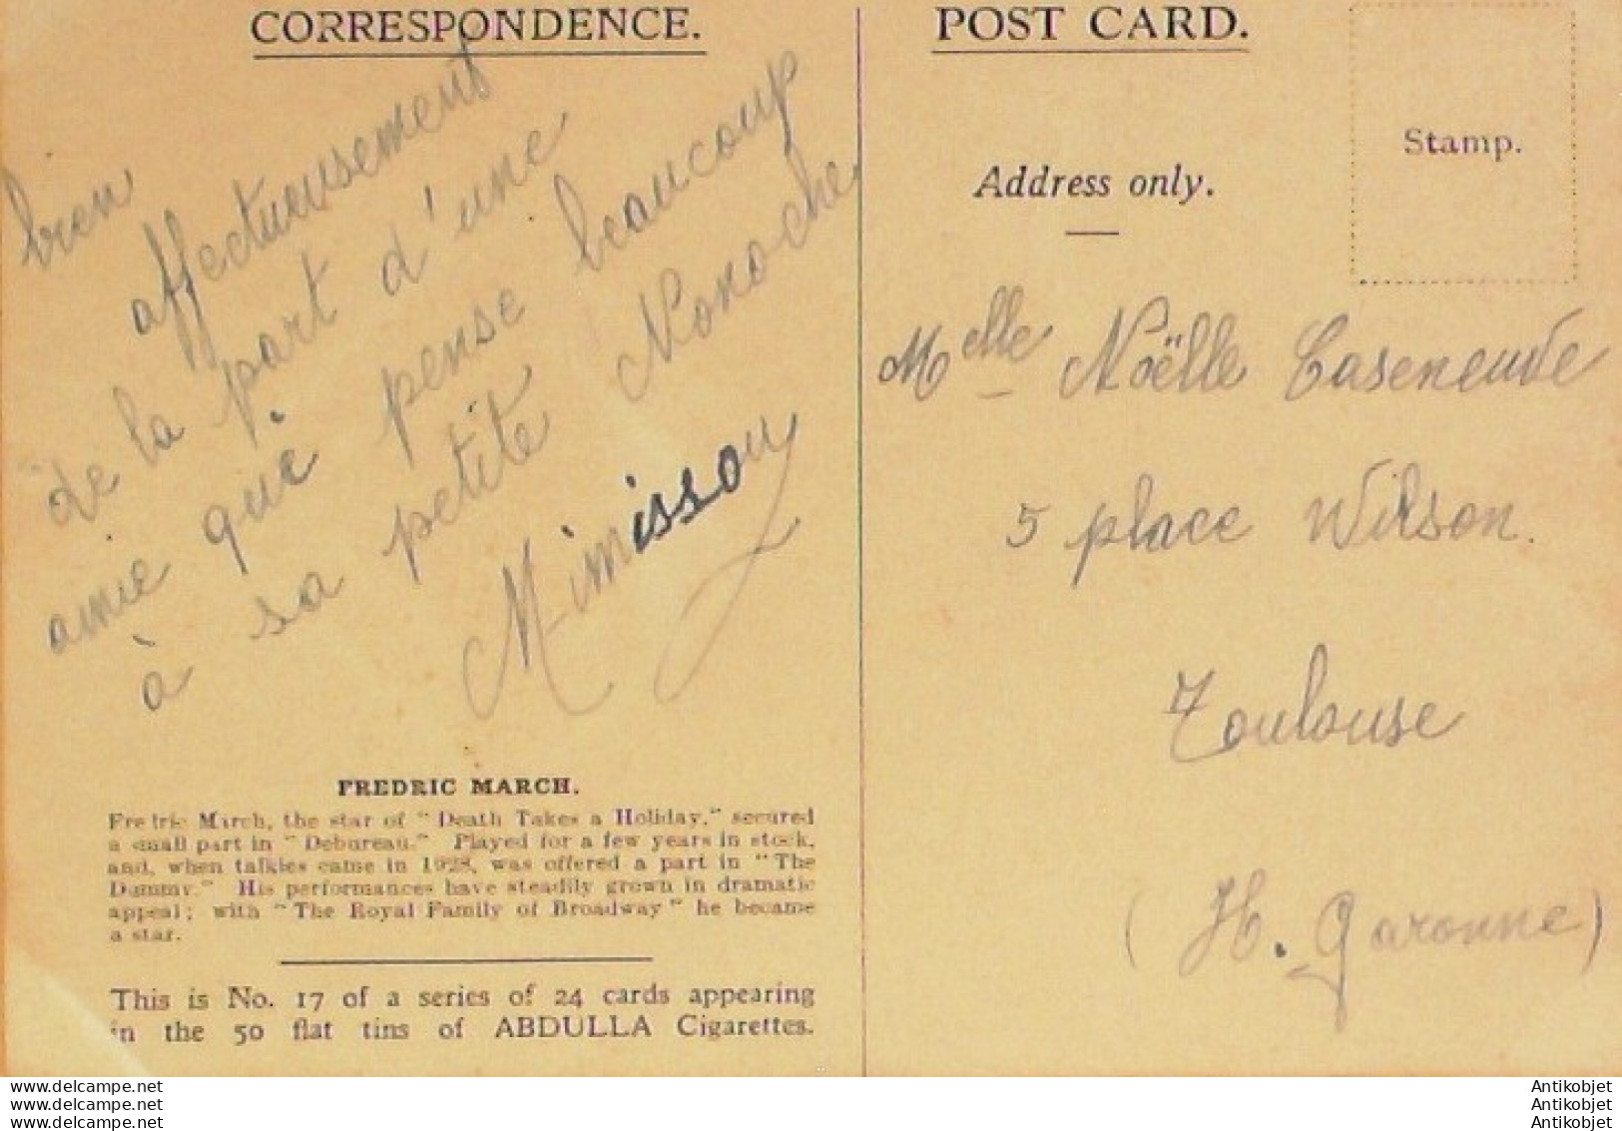 CORRESPONDENCE.
bien
affectueusement
de la part d'une
amie qui pense beaucoup
à sa petite Nonoche
Mimissou
FREDRIC MARCH.
Fredric March, the star of "Death Takes a Holiday," secured
a small part in "Debureau." Played for a few years in stock,
and, when talkies came in 1928, was offered a part in "The
Dummy." His performances have steadily grown in dramatic
appeal; with "The Royal Family of Broadway" he became
a star.
This is No. 17 of a series of 24 cards appearing
in the 50 flat tins of ABDULLA Cigarettes.
POST CARD.
Stamp.
Address only.
Melle Noëlle Caseneuve
5 place Wilson.
Toulouse
(H. Garonne)
www.delcampe.net
www.delcampe.net
www.delcampe.net
Antikobjet
Antikobjet
Antikobjet